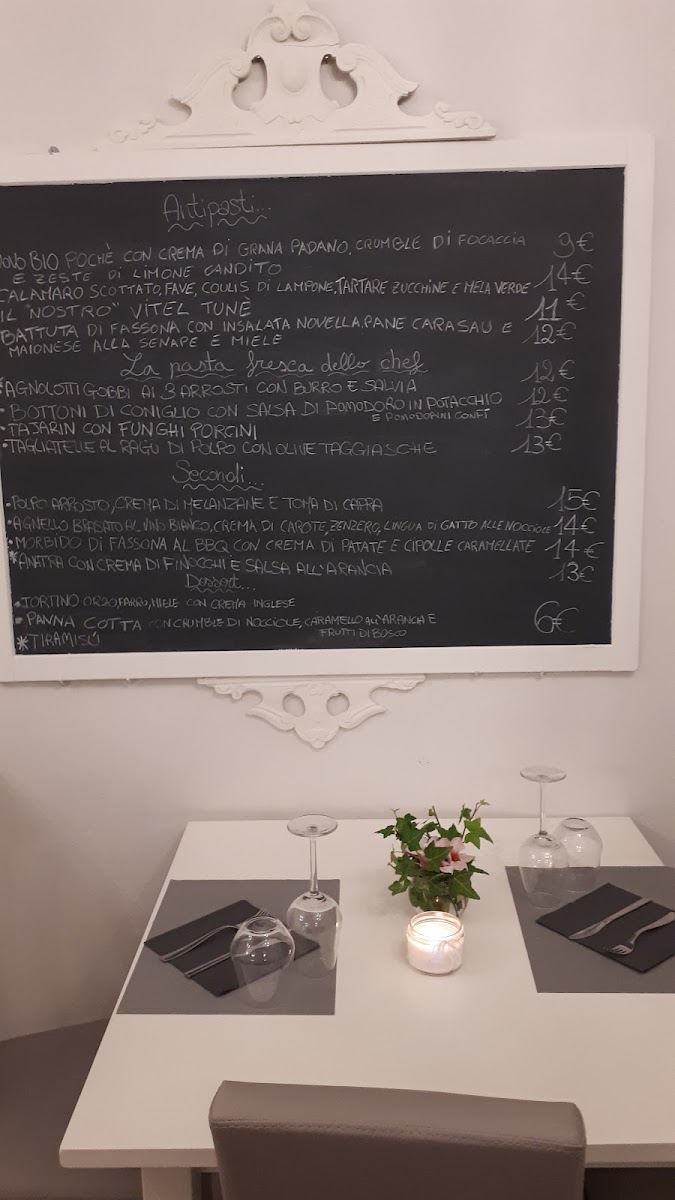 Antipasti...
UOVO BIO POCHÈ CON CREMA DI GRANA PADANO, CRUMBLE DI FOCACCIA 9€
E ZESTE DI LIMONE CANDITO
CALAMARO SCOTTATO, FAVE, COULIS DI LAMPONE, TARTARE ZUCCHINE E MELA VERDE 14€
IL "NOSTRO" VITEL TUNÈ 11€
BATTUTA DI FASSONA CON INSALATA NOVELLA, PANE CARASAU E 12€
MAIONESE ALLA SENAPE E MIELE
La pasta fresca dello chef
*AGNOLOTTI GOBBI AI 3 ARROSTI CON BURRO E SALVIA 12€
• BOTTONI DI CONIGLIO CON SALSA DI POMODORO IN POTACCHIO 12€
E POMODORINI CONFIT
• TAJARIN CON FUNGHI PORCINI 13€
• TAGLIATELLE AL RAGÙ DI POLPO CON OLIVE TAGGIASCHE 13€
Secondi...
• POLPO ARROSTO, CREMA DI MELANZANE E TOMA DI CAPRA 15€
• AGNELLO BRASATO AL VINO BIANCO, CREMA DI CAROTE, ZENZERO, LINGUA DI GATTO ALLE NOCCIOLE 14€
• MORBIDO DI FASSONA AL BBQ CON CREMA DI PATATE E CIPOLLE CARAMELLATE 14€
*ANATRA CON CREMA DI FINOCCHI E SALSA ALL'ARANCIA 13€
Dessert...
• TORTINO ORZO, FARRO, MIELE CON CREMA INGLESE
• PANNA COTTA CON CRUMBLE DI NOCCIOLE, CARAMELLO ALL'ARANCIA E 6€
FRUTTI DI BOSCO
*TIRAMISÚ